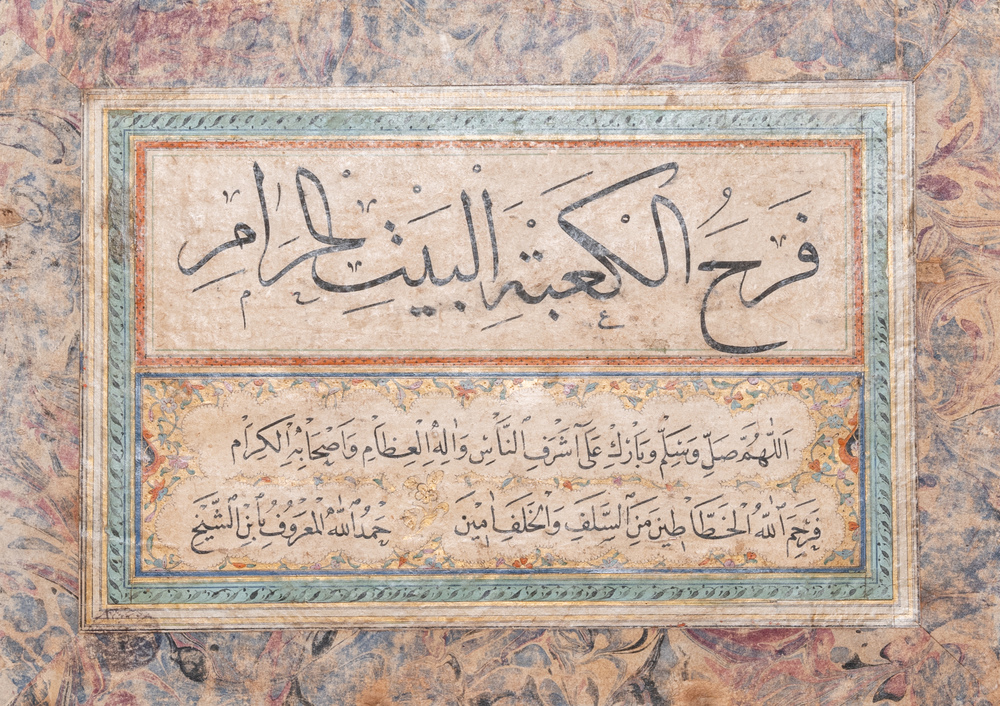 فَرَحُ الْكَعْبَةِ الْبَيْتِ الْحَرَامِ
اَللّٰهُمَّ صَلِّ وَسَلِّمْ وَبَارِكْ عَلَى اَشْرَفِ النَّاسِ وَاٰلِهِ الْعِظَامِ وَاَصْحَابِهِ الْكِرَامِ
فَرَحِمَ اللّٰهُ الْخَطَّاطِينَ مِنَ السَّلَفِ وَالْخَلَفِ اٰمِينَ حمد الله الْمَعْرُوفُ بِابْنِ الشَّيْخِ